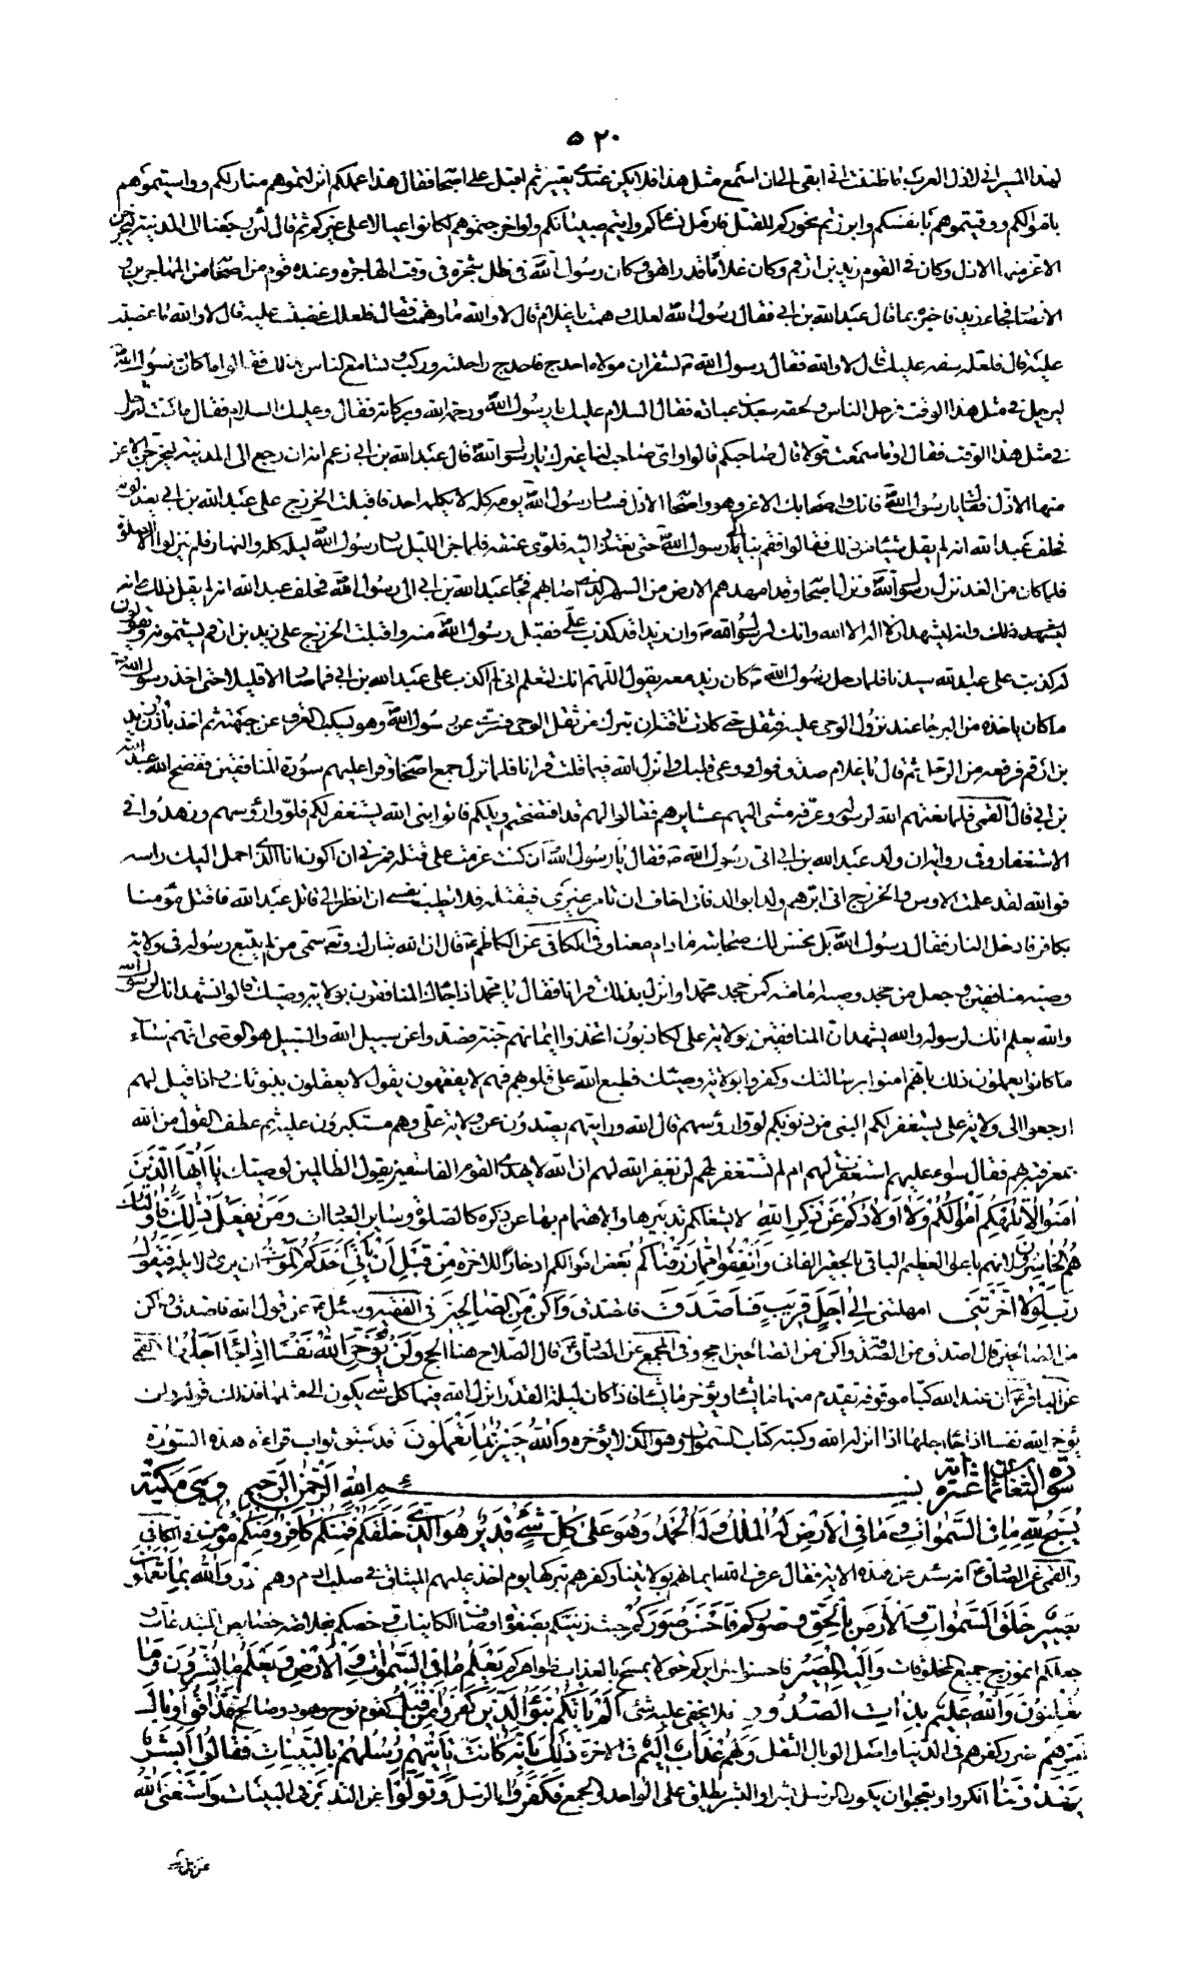 ٥٢٠
لهذا المسير اني لاذل العرب ما ظننت اني ابقى الى ان اسمع مثل هذا فلا يكن عندي تغيير ثم اقبل على اصحابه فقال هذا عملكم انزلتموهم منازلكم وواسيتموهم
باموالكم ووقيتموهم بانفسكم وابرزتم نحوركم للقتل فارمل نساءكم وايتم صبيانكم ولو اخرجتموهم لكانوا عيالا على غيركم ثم قال لئن رجعنا الى المدينة ليخرجن
الاعز منها الاذل وكان في القوم زيد بن ارقم وكان غلاما قد راهق وكان رسول الله في ظل شجرة في وقت الهاجرة وعنده قوم من اصحابه من المهاجرين و
الانصار فجاء زيد فاخبره بما قال عبد الله بن ابي فقال رسول الله لعلك وهمت يا غلام قال لا والله ما وهمت فقال فلعلك غضبت عليه قال لا والله ما غضبت
عليه قال فلعله سفه عليك قال لا والله فقال رسول الله ص لشقران مولاه احدج فاحدج راحلته وركب وتسامع الناس بذلك فقالوا ما كان رسول الله
ليرحل في مثل هذا الوقت فرحل الناس ولحقه سعد بن عبادة فقال السلام عليك يا رسول الله ورحمة الله وبركاته فقال وعليك السلام فقال ما كنت لترحل
في مثل هذا الوقت فقال اوما سمعت قولا قال صاحبكم قالوا واي صاحب لنا غيرك يا رسول الله قال عبد الله بن ابي زعم انه ان رجع الى المدينة ليخرجن الاعز
منها الاذل فقال يا رسول الله فانك واصحابك الاعز وهو واصحابه الاذل فسار رسول الله يومه كله لا يكلمه احد فاقبلت الخزرج على عبد الله بن ابي يعذلونه
فحلف عبد الله انه لم يقل شيئا من ذلك فقالوا فقم بنا الى رسول الله حتى نعتذر اليه فلوى عنقه فلما جن الليل سار رسول الله ليله كله والنهار فلم ينزلوا الا للصلوة
فلما كان من الغد نزل رسول الله ونزل اصحابه وقد امهدهم الارض من السهر الذي اصابهم فجاء عبد الله بن ابي الى رسول الله فحلف عبد الله انه لم يقل ذلك وانه
ليشهد ذلك وانه ليشهد ان لا اله الا الله وانك لرسول الله ص وان زيدا قد كذب علي فقبل رسول الله منه واقبلت الخزرج على زيد بن ارقم يشتمونه ويقولون
له كذبت على عبد الله سيدنا فلما رحل رسول الله ص كان زيد معه يقول اللهم انك لتعلم اني لم اكذب على عبد الله بن ابي فما سار الا قليلا حتى اخذ رسول الله
ما كان ياخذه من البرحاء عند نزول الوحي عليه فثقل حتى كادت ناقته ان تبرك من ثقل الوحي فسري عن رسول الله وهو يسكب العرق عن جبهته ثم اخذ باذن زيد
بن ارقم فرفعه من الرحل ثم قال يا غلام صدق قولك ووعى قلبك وانزل الله فيما قلت قرانا فلما نزل جمع اصحابه وقرا عليهم سورة المنافقين ففضح الله عبد الله
بن ابي قال القمي فلما نعتهم الله لرسوله وعرفه مشى اليهم عشايرهم فقالوا لهم قد افتضحتم ويلكم فاتوا نبي الله يستغفر لكم فلووا رؤسهم وزهدوا في
الاستغفار وفي رواية ان ولد عبد الله بن ابي اتى رسول الله ص فقال يا رسول الله ان كنت عزمت على قتله فمرني ان اكون انا الذي احمل اليك راسه
فوالله لقد علمت الاوس والخزرج اني ابرهم ولدا بوالد فاني اخاف ان تامر غيري فيقتله فلا تطيب نفسي ان انظر الى قاتل عبد الله فاقتل مؤمنا
بكافر فادخل النار فقال رسول الله بل نحسن لك صحابته ما دام معنا وفي الكافي عن الكاظم ع قال ان الله تبارك وتع سمى من لم يتبع رسوله في ولاية
وصيه منافقين وجعل من جحد وصيه امامته كمن جحد محمدا وانزل بذلك قرانا فقال يا محمد اذا جاءك المنافقون بولاية وصيك قالوا نشهد انك لرسول الله
والله يعلم انك لرسوله والله يشهد ان المنافقين بولاية علي لكاذبون اتخذوا ايمانهم جنة فصدوا عن سبيل الله والسبيل هو الوصي انهم ساء
ما كانوا يعملون ذلك بانهم امنوا برسالتك وكفروا بولاية وصيك فطبع الله على قلوبهم فهم لا يفقهون يقول لا يعقلون بنبوتك واذا قيل لهم
ارجعوا الى ولاية علي يستغفر لكم النبي من ذنوبكم لووا رؤسهم قال الله ورايتهم يصدون عن ولاية علي وهم مستكبرون عليه ثم عطف القول من الله
بمعرفته بهم فقال سواء عليهم استغفرت لهم ام لم تستغفر لهم لن يغفر الله لهم ان الله لا يهدي القوم الفاسقين يقول الظالمين لوصيك يَا اَيُّهَا الَّذِينَ
اٰمَنُوا لَا تُلْهِكُمْ اَمْوَالُكُمْ وَلَا اَوْلَادُكُمْ عَنْ ذِكْرِ اللهِ لا يشغلكم تدبيرها والاهتمام بها عن ذكره كالصلوة وساير العبادات وَمَنْ يَفْعَلْ ذٰلِكَ فَاُولٰئِكَ
هُمُ الْخَاسِرُونَ لانهم باعوا العظيم الباقي بالحقير الفاني وَاَنْفِقُوا مِمَّا رَزَقْنَاكُمْ بعض اموالكم ادخارا للاخرة مِنْ قَبْلِ اَنْ يَأْتِيَ اَحَدَكُمُ الْمَوْتُ ان يرى دلايله فَيَقُولَ
رَبِّ لَوْلَا اَخَّرْتَنِي امهلتني اِلٰى اَجَلٍ قَرِيبٍ فَاَصَّدَّقَ فاتصدق وَاَكُنْ مِنَ الصَّالِحِينَ في الفقيه وسئل ع عن قول الله فاصدق واكن
من الصالحين قال اصدق من الصدقة واكن من الصالحين احج وفي المجمع عن الصادق ع قال الصلاح هنا الحج وَلَنْ يُؤَخِّرَ اللهُ نَفْسًا اِذَا جَاءَ اَجَلُهَا القمي
عن الباقر ع ان عند الله كتبا موقوفة يقدم منها ما يشاء ويؤخر ما يشاء فاذا كان ليلة القدر انزل الله فيها كل شيء يكون الى مثلها فذلك قوله ولن
يؤخر الله نفسا اذا جاء اجلها اذا انزله الله وكتبه كتاب السموات وهو الذي لا يؤخره وَاللهُ خَبِيرٌ بِمَا تَعْمَلُونَ قد سبق ثواب قراءة هذه السورة
سورة التغابن ثماني عشرة اية بِسْمِ اللهِ الرَّحْمٰنِ الرَّحِيمِ وهي مكية
يُسَبِّحُ لِلهِ مَا فِي السَّمٰوَاتِ وَمَا فِي الْاَرْضِ لَهُ الْمُلْكُ وَلَهُ الْحَمْدُ وَهُوَ عَلٰى كُلِّ شَيْءٍ قَدِيرٌ هُوَ الَّذِي خَلَقَكُمْ فَمِنْكُمْ كَافِرٌ وَمِنْكُمْ مُؤْمِنٌ في الكافي
والقمي عن الصادق ع انه سئل عن هذه الاية فقال عرف الله ايمانهم بولايتنا وكفرهم بتركها يوم اخذ عليهم الميثاق في صلب ادم وهم ذر وَاللهُ بِمَا تَعْمَلُونَ
بَصِيرٌ خَلَقَ السَّمٰوَاتِ وَالْاَرْضَ بِالْحَقِّ وَصَوَّرَكُمْ فَاَحْسَنَ صُوَرَكُمْ حيث زينكم بصفوة اوصاف الكاينات وخصكم بخلاصة خصايص المبدعات و
جعلكم انموذج جميع المخلوقات وَاِلَيْهِ الْمَصِيرُ فاحسنوا سرايركم حتى لا يمسخ بالعذاب ظواهركم يَعْلَمُ مَا فِي السَّمٰوَاتِ وَالْاَرْضِ وَيَعْلَمُ مَا تُسِرُّونَ وَمَا
تُعْلِنُونَ وَاللهُ عَلِيمٌ بِذَاتِ الصُّدُورِ فلا يخفى عليه شيء اَلَمْ يَأْتِكُمْ نَبَؤُا الَّذِينَ كَفَرُوا مِنْ قَبْلُ كقوم نوح وهود وصالح فَذَاقُوا وَبَالَ
اَمْرِهِمْ ضرر كفرهم في الدنيا واصل الوبال الثقل وَلَهُمْ عَذَابٌ اَلِيمٌ في الاخرة ذٰلِكَ بِاَنَّهُ كَانَتْ تَأْتِيهِمْ رُسُلُهُمْ بِالْبَيِّنَاتِ فَقَالُوا اَبَشَرٌ
يَهْدُونَنَا انكروا وتعجبوا ان يكون الرسل بشرا والبشر يطلق على الواحد والجمع فَكَفَرُوا بالرسل وَتَوَلَّوْا عن التدبر في البينات وَاسْتَغْنَى اللهُ
عن كل شيء